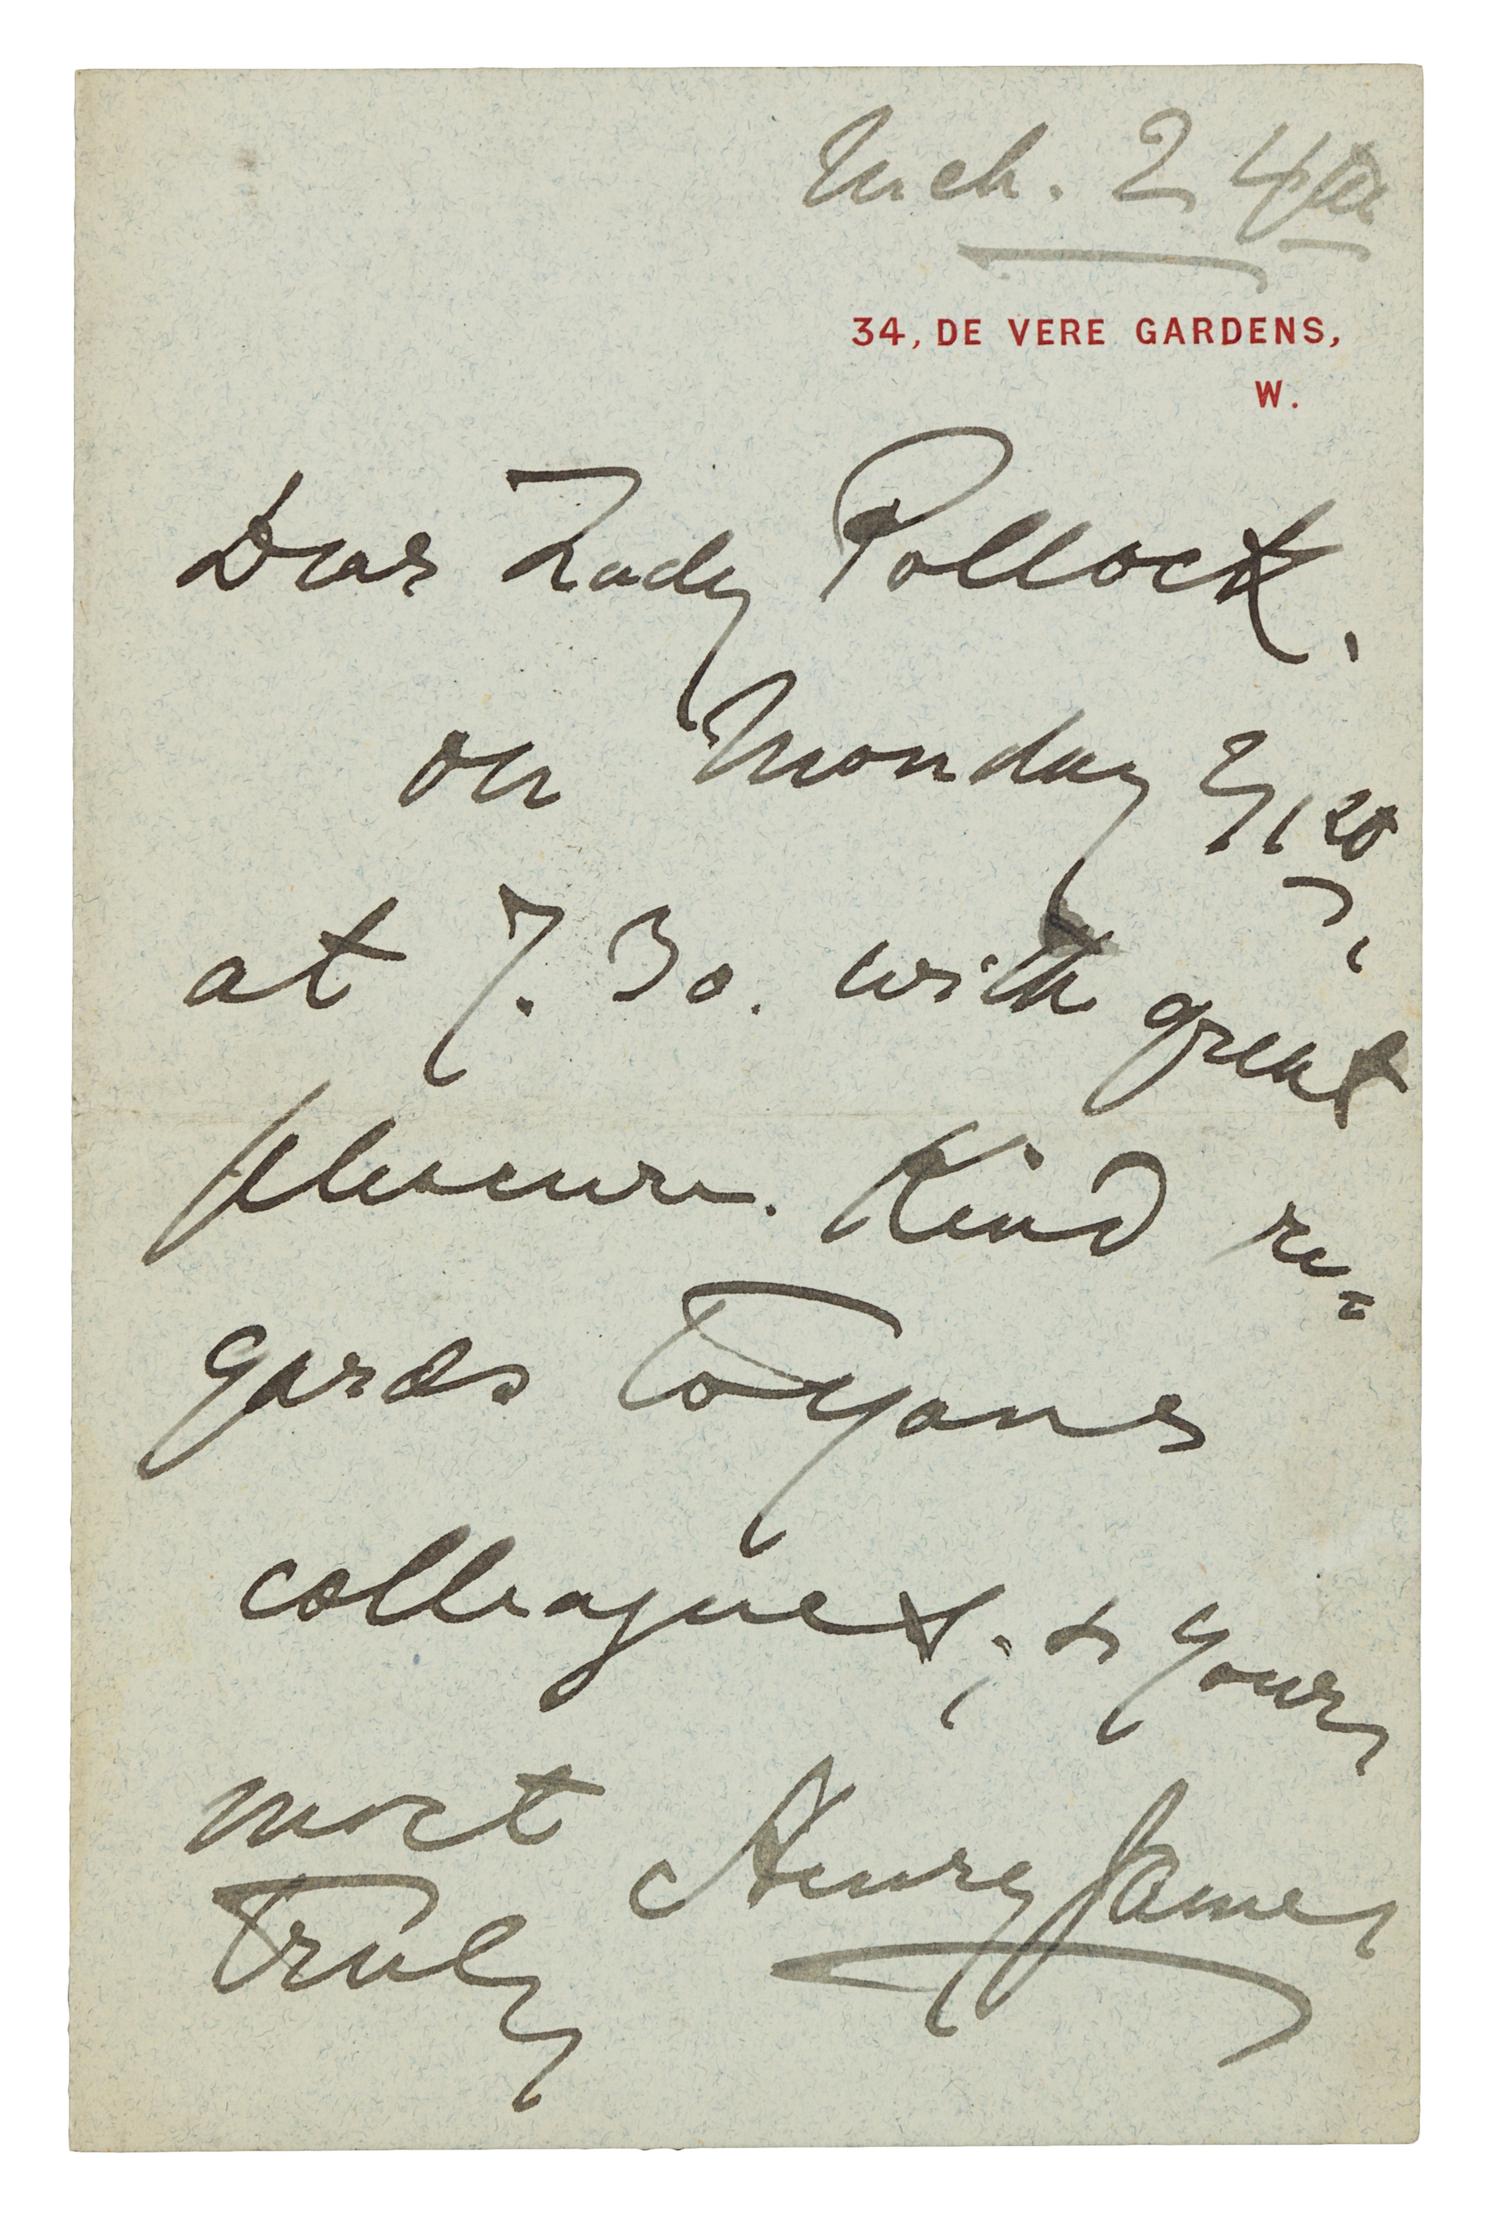 Mch. 24th
34, DE VERE GARDENS,
W.
Dear Lady Pollock.
on Monday
at 7.30. with great
pleasure. Kind re=
gards to your
colleagues, & yours
most
truly Henry James